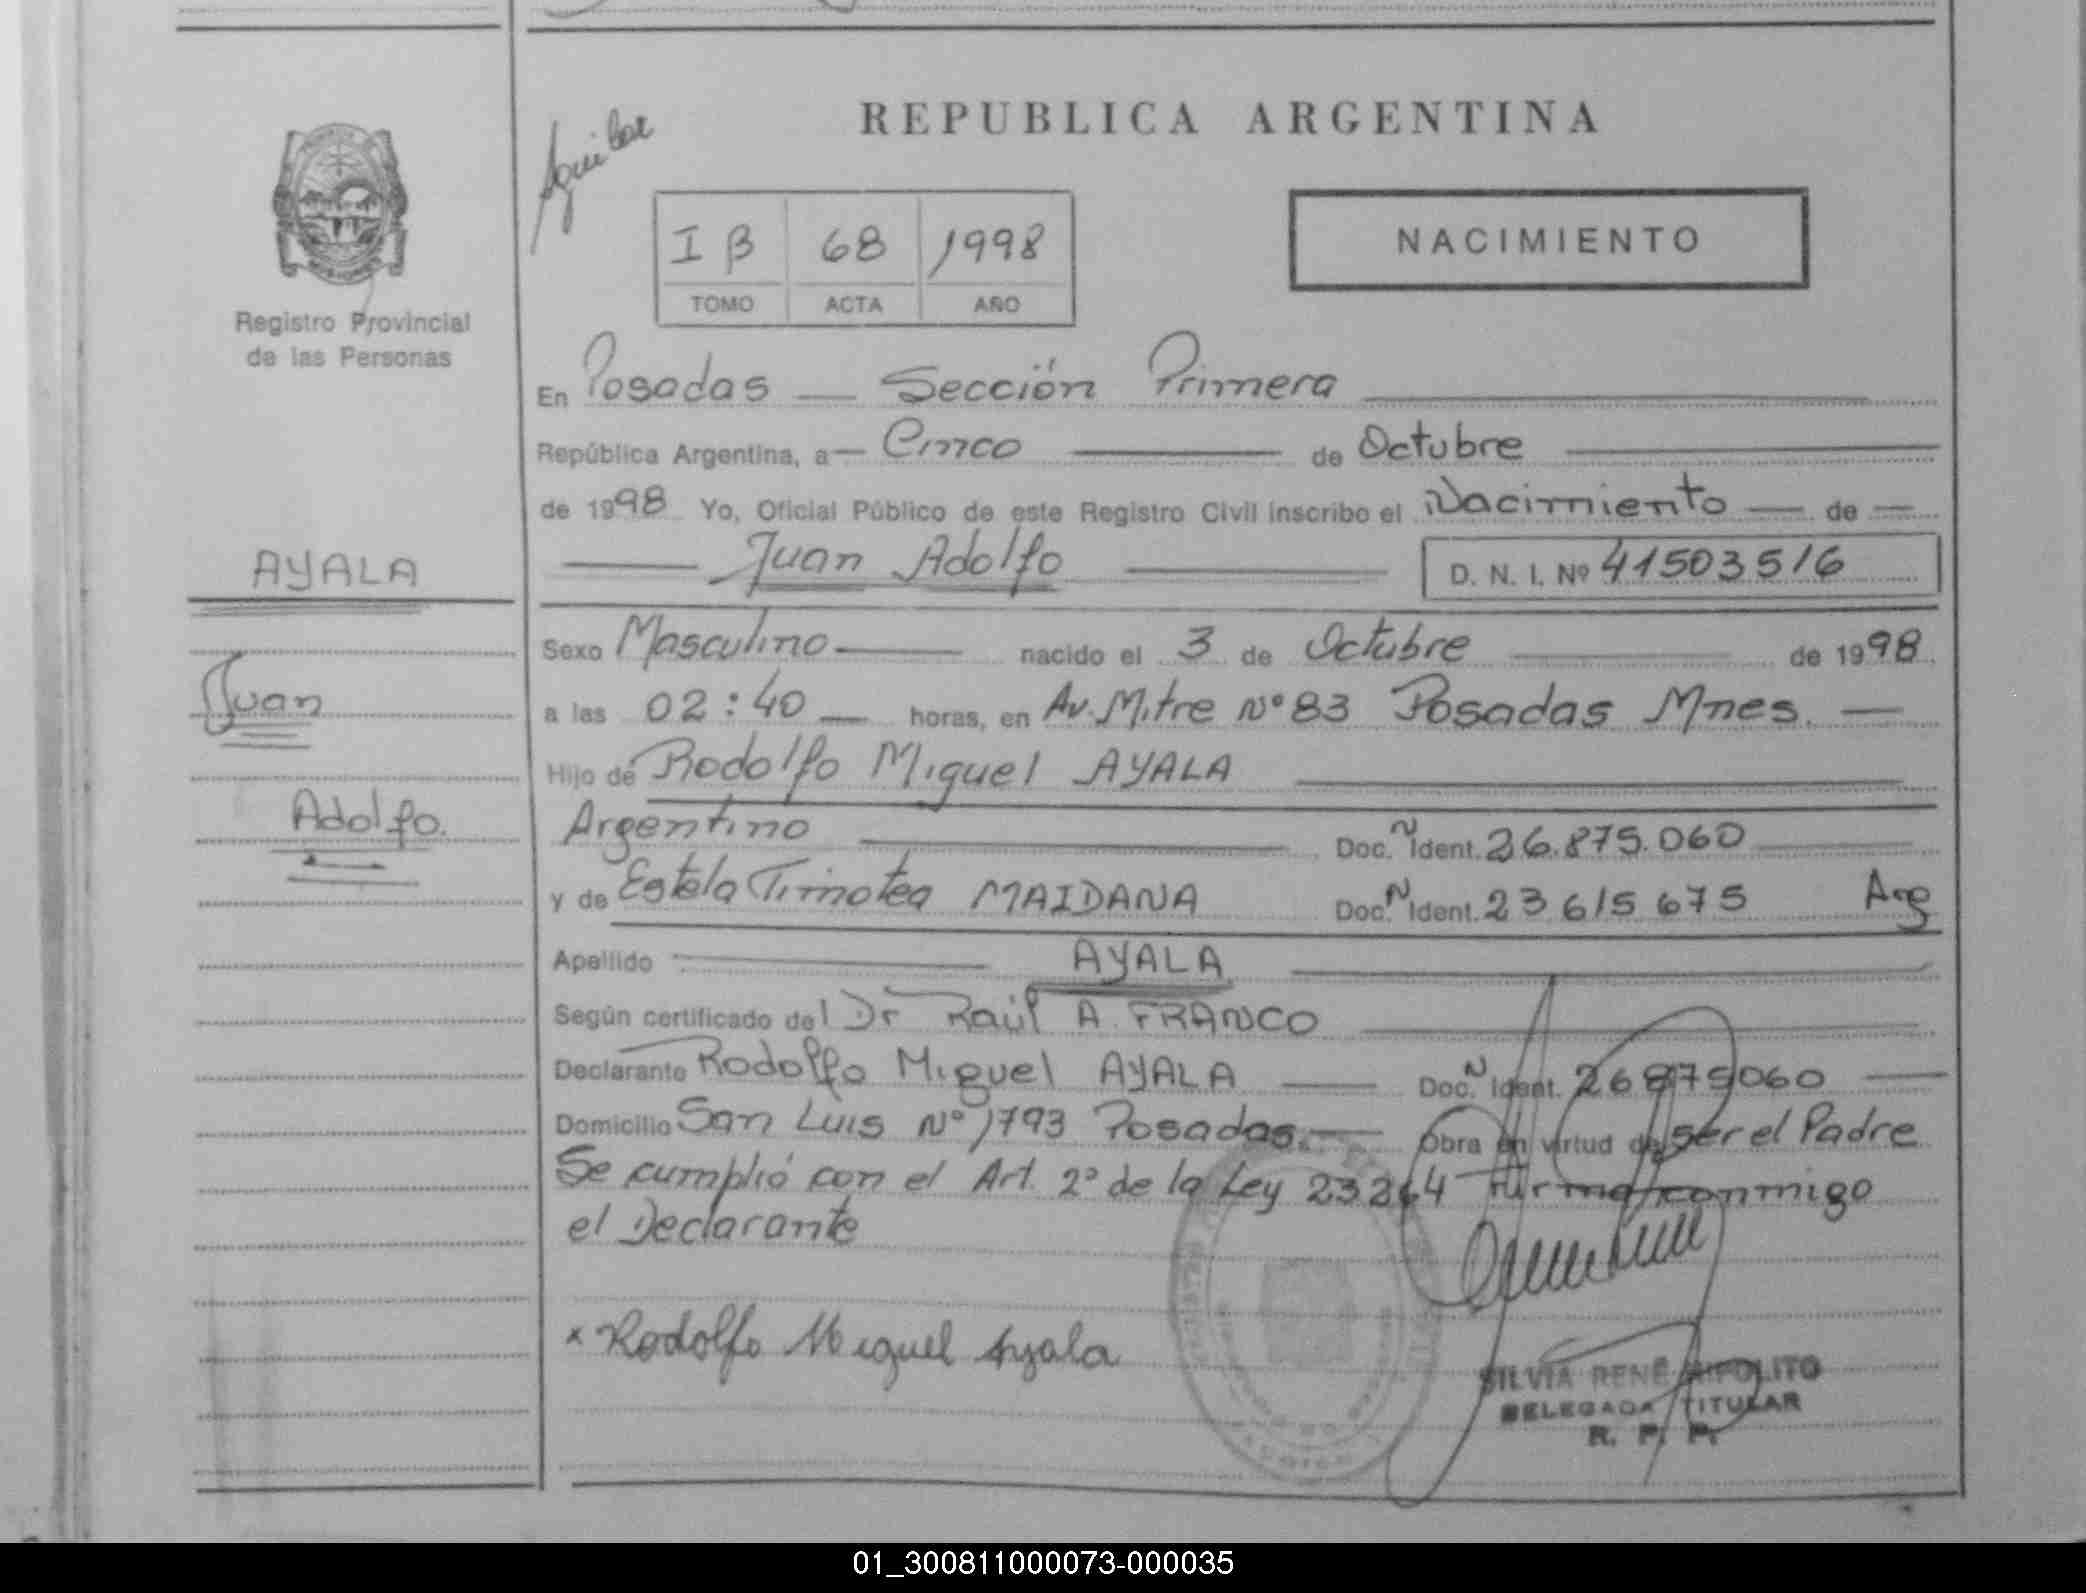 REPUBLICA ARGENTINA
Aguilar
I B 68 1998
TOMO ACTA AÑO
NACIMIENTO
Registro Provincial
de las Personas
En Posadas — Sección Primera
República Argentina, a — Cinco de Octubre
de 1998 Yo, Oficial Público de este Registro Civil inscribo el Nacimiento — de —
Juan Adolfo
D. N. I. Nº 41503516
AYALA
Juan
Adolfo.
Sexo Masculino nacido el 3 de Octubre de 1998
a las 02:40 — horas, en Av. Mitre Nº 83 Posadas Mnes. —
Hijo de Rodolfo Miguel AYALA
Argentino Doc. N Ident. 26.875.060
y de Estela Timotea MAIDANA Doc. N Ident. 23 615 675 Arg
Apellido AYALA
Según certificado del Dr Raúl A. FRANCO
Declarante Rodolfo Miguel AYALA — Doc. N Ident. 26875060 —
Domicilio San Luis Nº 1793 Posadas. — Obra en virtud de ser el Padre
Se cumplió con el Art. 2º de la Ley 23264 Firma conmigo
el Declarante
x Rodolfo Miguel Ayala
SILVIA RENÉ HIPOLITO
DELEGADA TITULAR
R. P. P.
01_300811000073-000035